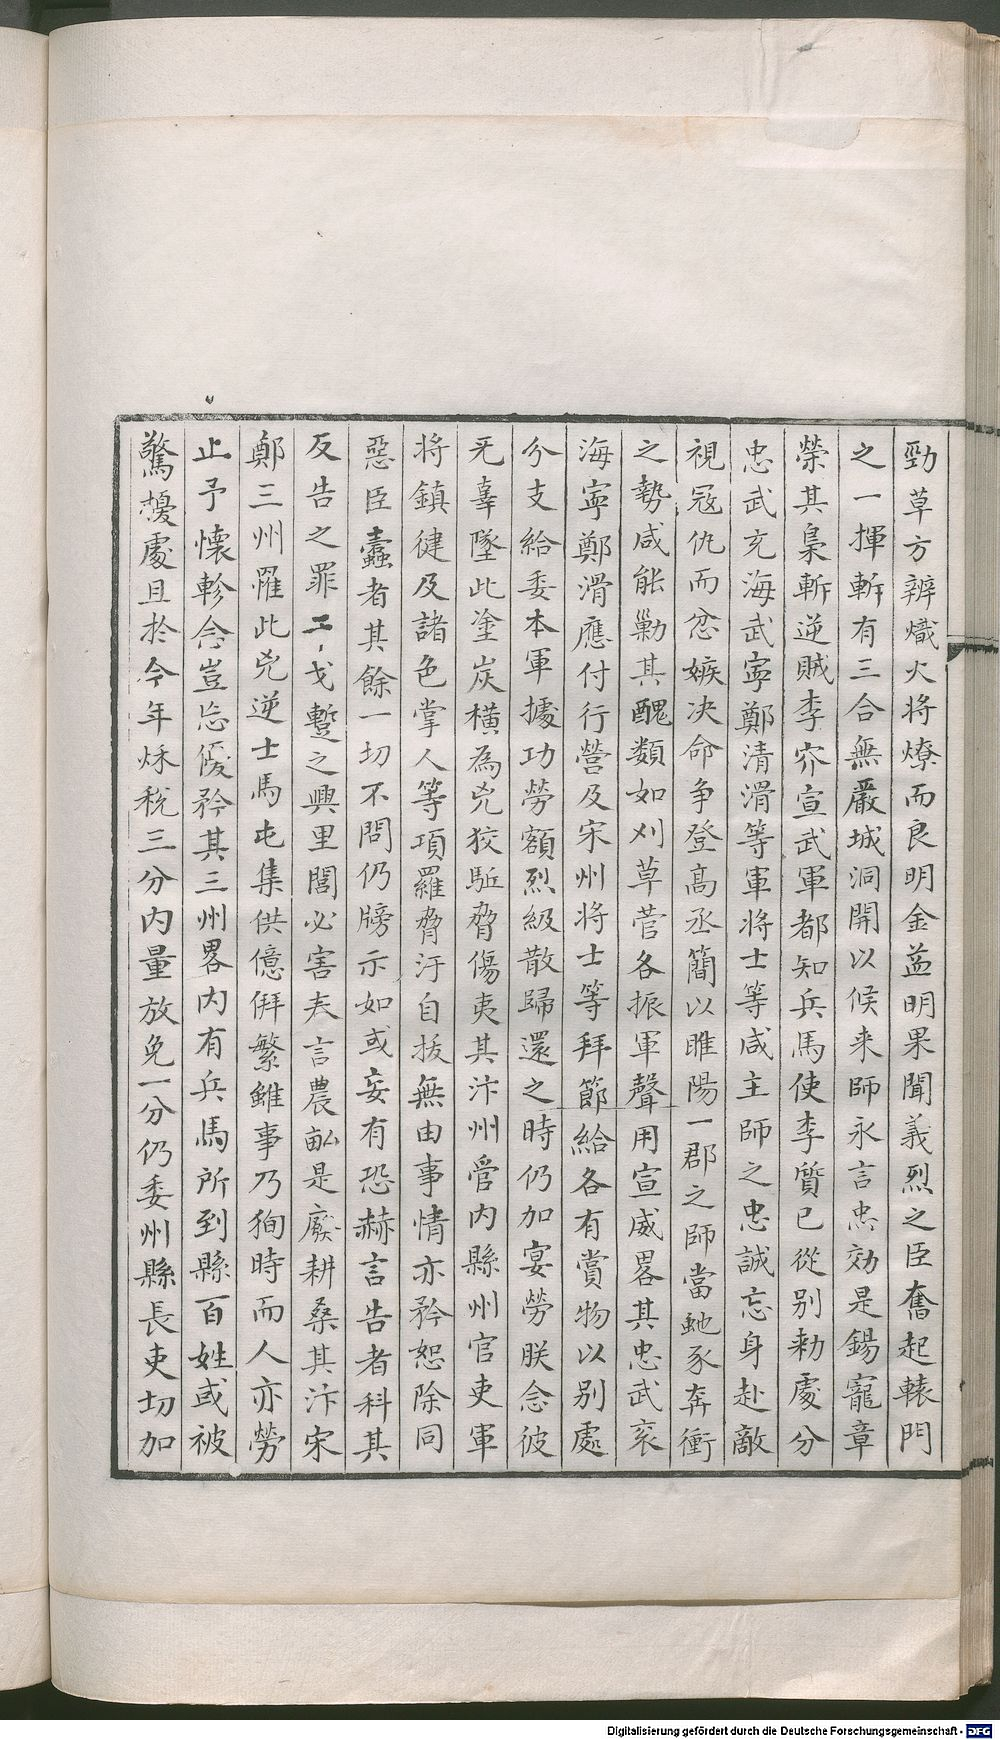 勁草方辨熾火將燎而良明金益明果聞義烈之臣奮起轅門
之一揮斬有三合無嚴城洞開以候来師永言忠効是錫寵章
榮其梟斬逆賊李㝏宣武軍都知兵馬使李質已從别勅處分
忠武兖海武寧鄭清滑等軍將士等咸主師之忠誠忘身赴敵
視冦仇而忿嫉决命争登髙丞簡以睢陽一郡之師當虵豕奔衝
之勢咸能勦其醜類如刈草菅各振軍聲用宣威畧其忠武兖
海寧鄭滑應付行營及宋州將士等拜節給各有賞物以别處
分支給委本軍據功勞額烈級散歸還之時仍加宴勞朕念彼
无辜墜此塗炭横為兇狡駈脅傷夷其汴州管内縣州官吏軍
将鎮健及諸色掌人等項羅脅汙自拔無由事情亦矜恕除同
惡臣蠹者其餘一切不問仍牓示如或妄有恐赫言告者科其
反告之罪工戈蹔之興里閭必害夫言農畝是廢耕桑其汴宋
鄭三州罹此兇逆士馬屯集供億倂繁雖事乃狥時而人亦勞
止予懐軫念豈忘優矜其三州畧内有兵馬所到縣百姓或被
驚擾處且扵今年秌税三分内量放免一分仍委州縣長吏切加
Digitalisierung gefördert durch die Deutsche Forschungsgemeinschaft - DFG